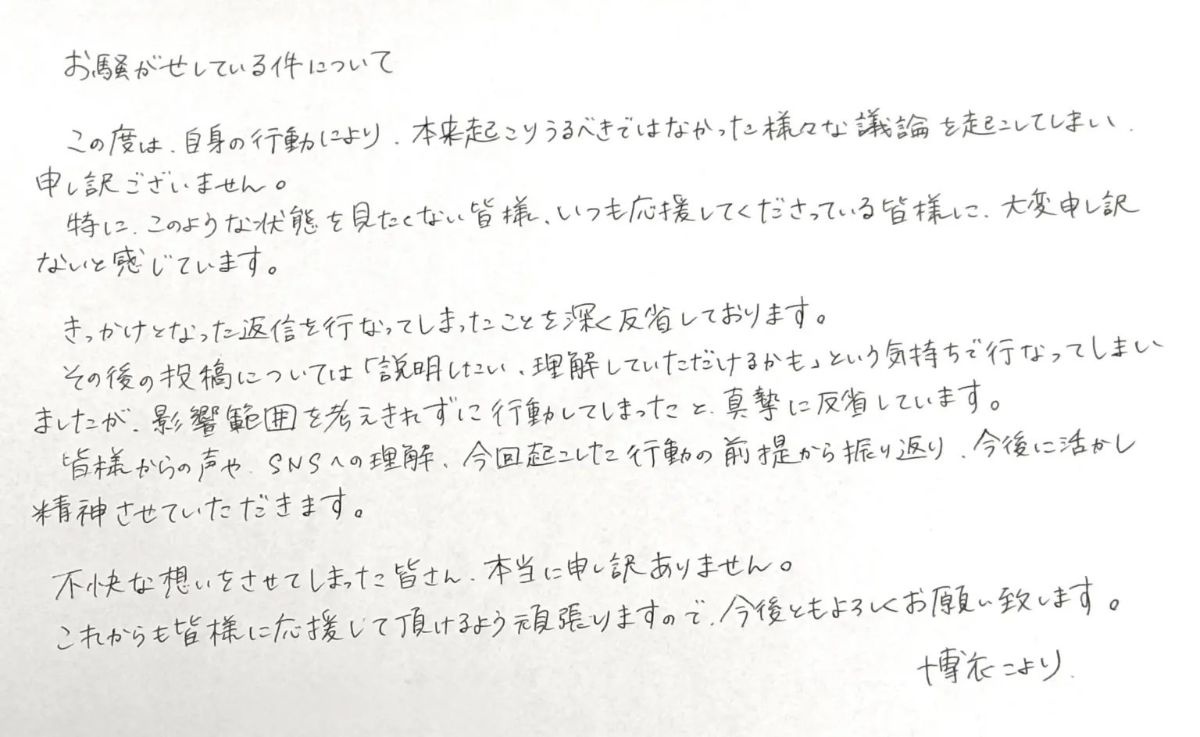 お騒がせしている件について
この度は、自身の行動により、本来起こりうるべきではなかった様々な議論を起こしてしまい、
申し訳ございません。
特に、このような状態を見たくない皆様、いつも応援してくださっている皆様に、大変申し訳
ないと感じています。
きっかけとなった返信を行なってしまったことを深く反省しております。
その後の投稿については「説明したい、理解していただけるかも」という気持ちで行なってしまい
ましたが、影響範囲を考えきれずに行動してしまったと、真摯に反省しています。
皆様からの声や、SNSへの理解、今回起こした行動の前提から振り返り、今後に活かし
精神させていただきます。
不快な想いをさせてしまった皆さん、本当に申し訳ありません。
これからも皆様に応援して頂けるよう頑張りますので、今後ともよろしくお願い致します。
博衣こより